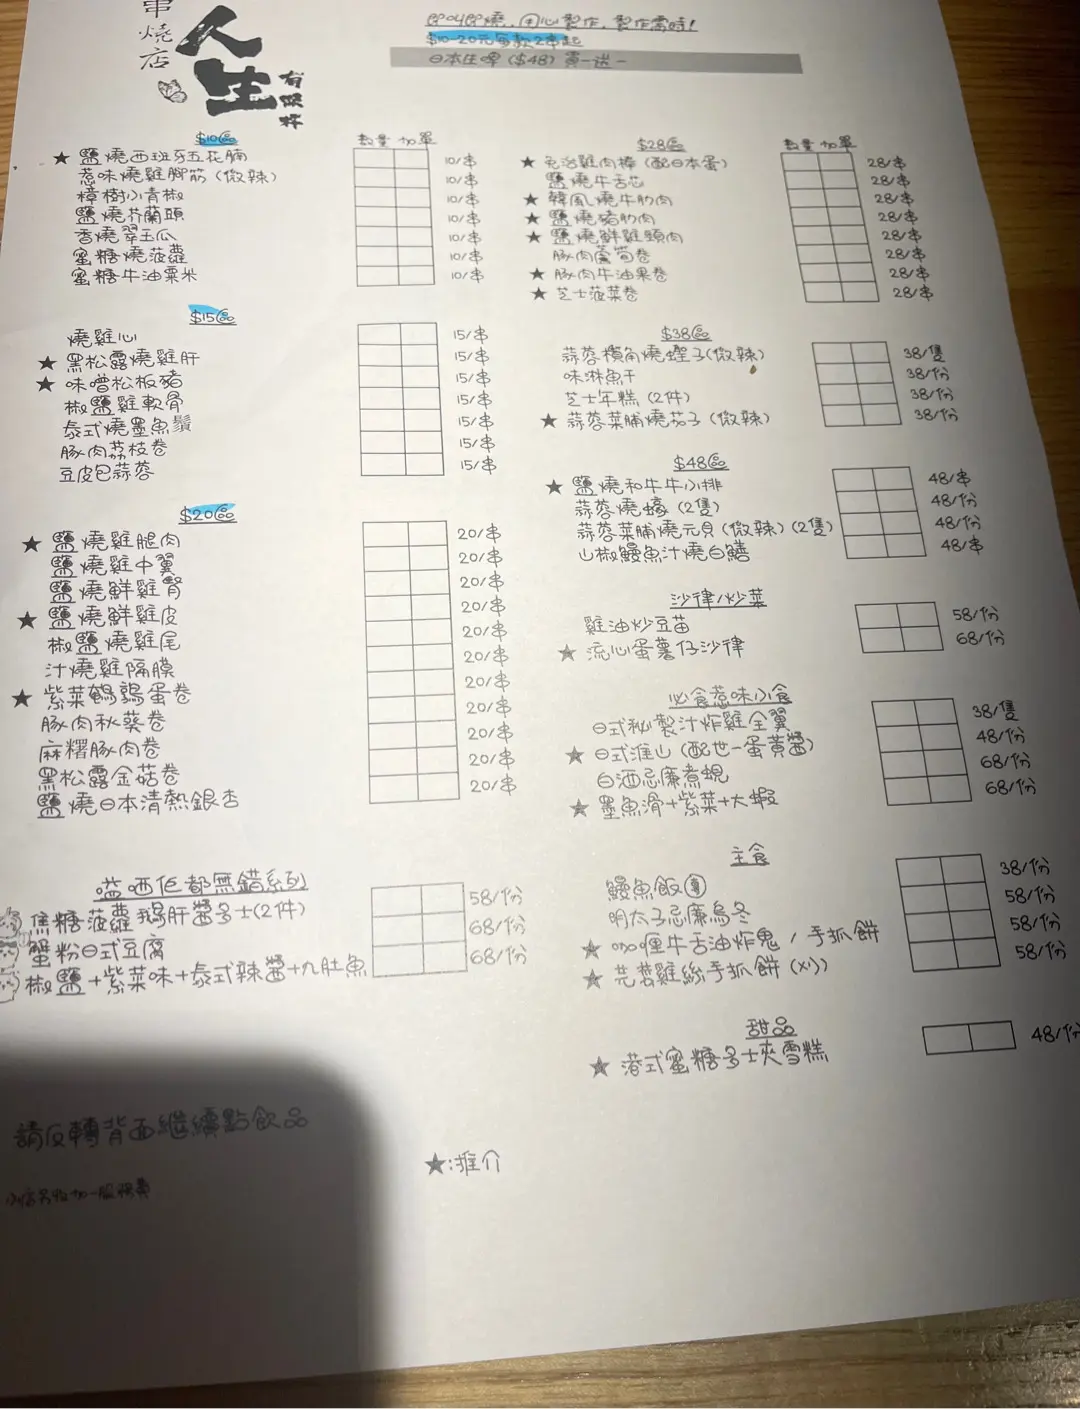 串燒店
人生
有限杯
即叫即燒,用心製作,製作需時!
$10-20元每款2串起
日本生啤($48) 買一送一
$10區
數量 加單
★ 鹽燒西班牙五花腩 10/串
惹味燒雞腳筋(微辣) 10/串
樟樹小青椒 10/串
鹽燒芥蘭頭 10/串
香燒翠玉瓜 10/串
蜜糖燒菠蘿 10/串
蜜糖牛油粟米 10/串
$15區
燒雞心 15/串
★ 黑松露燒雞肝 15/串
★ 味噌松板豬 15/串
椒鹽雞軟骨 15/串
泰式燒墨魚鬚 15/串
豚肉荔枝卷 15/串
豆皮包蒜蓉 15/串
$20區
★ 鹽燒雞腿肉 20/串
鹽燒雞中翼 20/串
鹽燒鮮雞腎 20/串
★ 鹽燒鮮雞皮 20/串
椒鹽燒雞尾 20/串
汁燒雞隔膜 20/串
★ 紫菜鵪鶉蛋卷 20/串
豚肉秋葵卷 20/串
麻糬豚肉卷 20/串
黑松露金菇卷 20/串
鹽燒日本清熱銀杏 20/串
嗌晒佢都無錯系列
焦糖菠蘿鵝肝醬多士(2件) 58/份
蟹粉日式豆腐 68/份
椒鹽+紫菜味+泰式辣醬+九肚魚 68/份
請反轉背面繼續點飲品
小店另收加一服務費
$28區
數量 加單
★ 免治雞肉棒(配日本蛋) 28/串
鹽燒牛舌芯 28/串
★ 韓風燒牛肋肉 28/串
★ 鹽燒豬肋肉 28/串
★ 鹽燒鮮雞頸肉 28/串
豚肉蘆筍卷 28/串
★ 豚肉牛油果卷 28/串
★ 芝士菠菜卷 28/串
$38區
蒜蓉欖角燒蟶子(微辣) 38/隻
味淋魚干 38/份
芝士年糕(2件) 38/份
★ 蒜蓉菜脯燒茄子(微辣) 38/份
$48區
★ 鹽燒和牛牛小排 48/串
蒜蓉燒蠔(2隻) 48/份
蒜蓉菜脯燒元貝(微辣)(2隻) 48/份
山椒鰻魚汁燒白鱔 48/串
沙律/炒菜
雞油炒豆苗 58/份
★ 流心蛋薯仔沙律 68/份
必食惹味小食
日式秘製汁炸雞全翼 38/隻
★ 日式淮山(配世一蛋黃醬) 48/份
白酒忌廉煮蜆 68/份
★ 墨魚滑+紫菜+大蝦 68/份
主食
鰻魚飯 38/份
明太子忌廉烏冬 58/份
★ 咖喱牛舌油炸鬼 / 手抓餅 58/份
★ 芫荽雞絲手抓餅(刈) 58/份
甜品
★ 港式蜜糖多士夾雪糕 48/份
★:推介